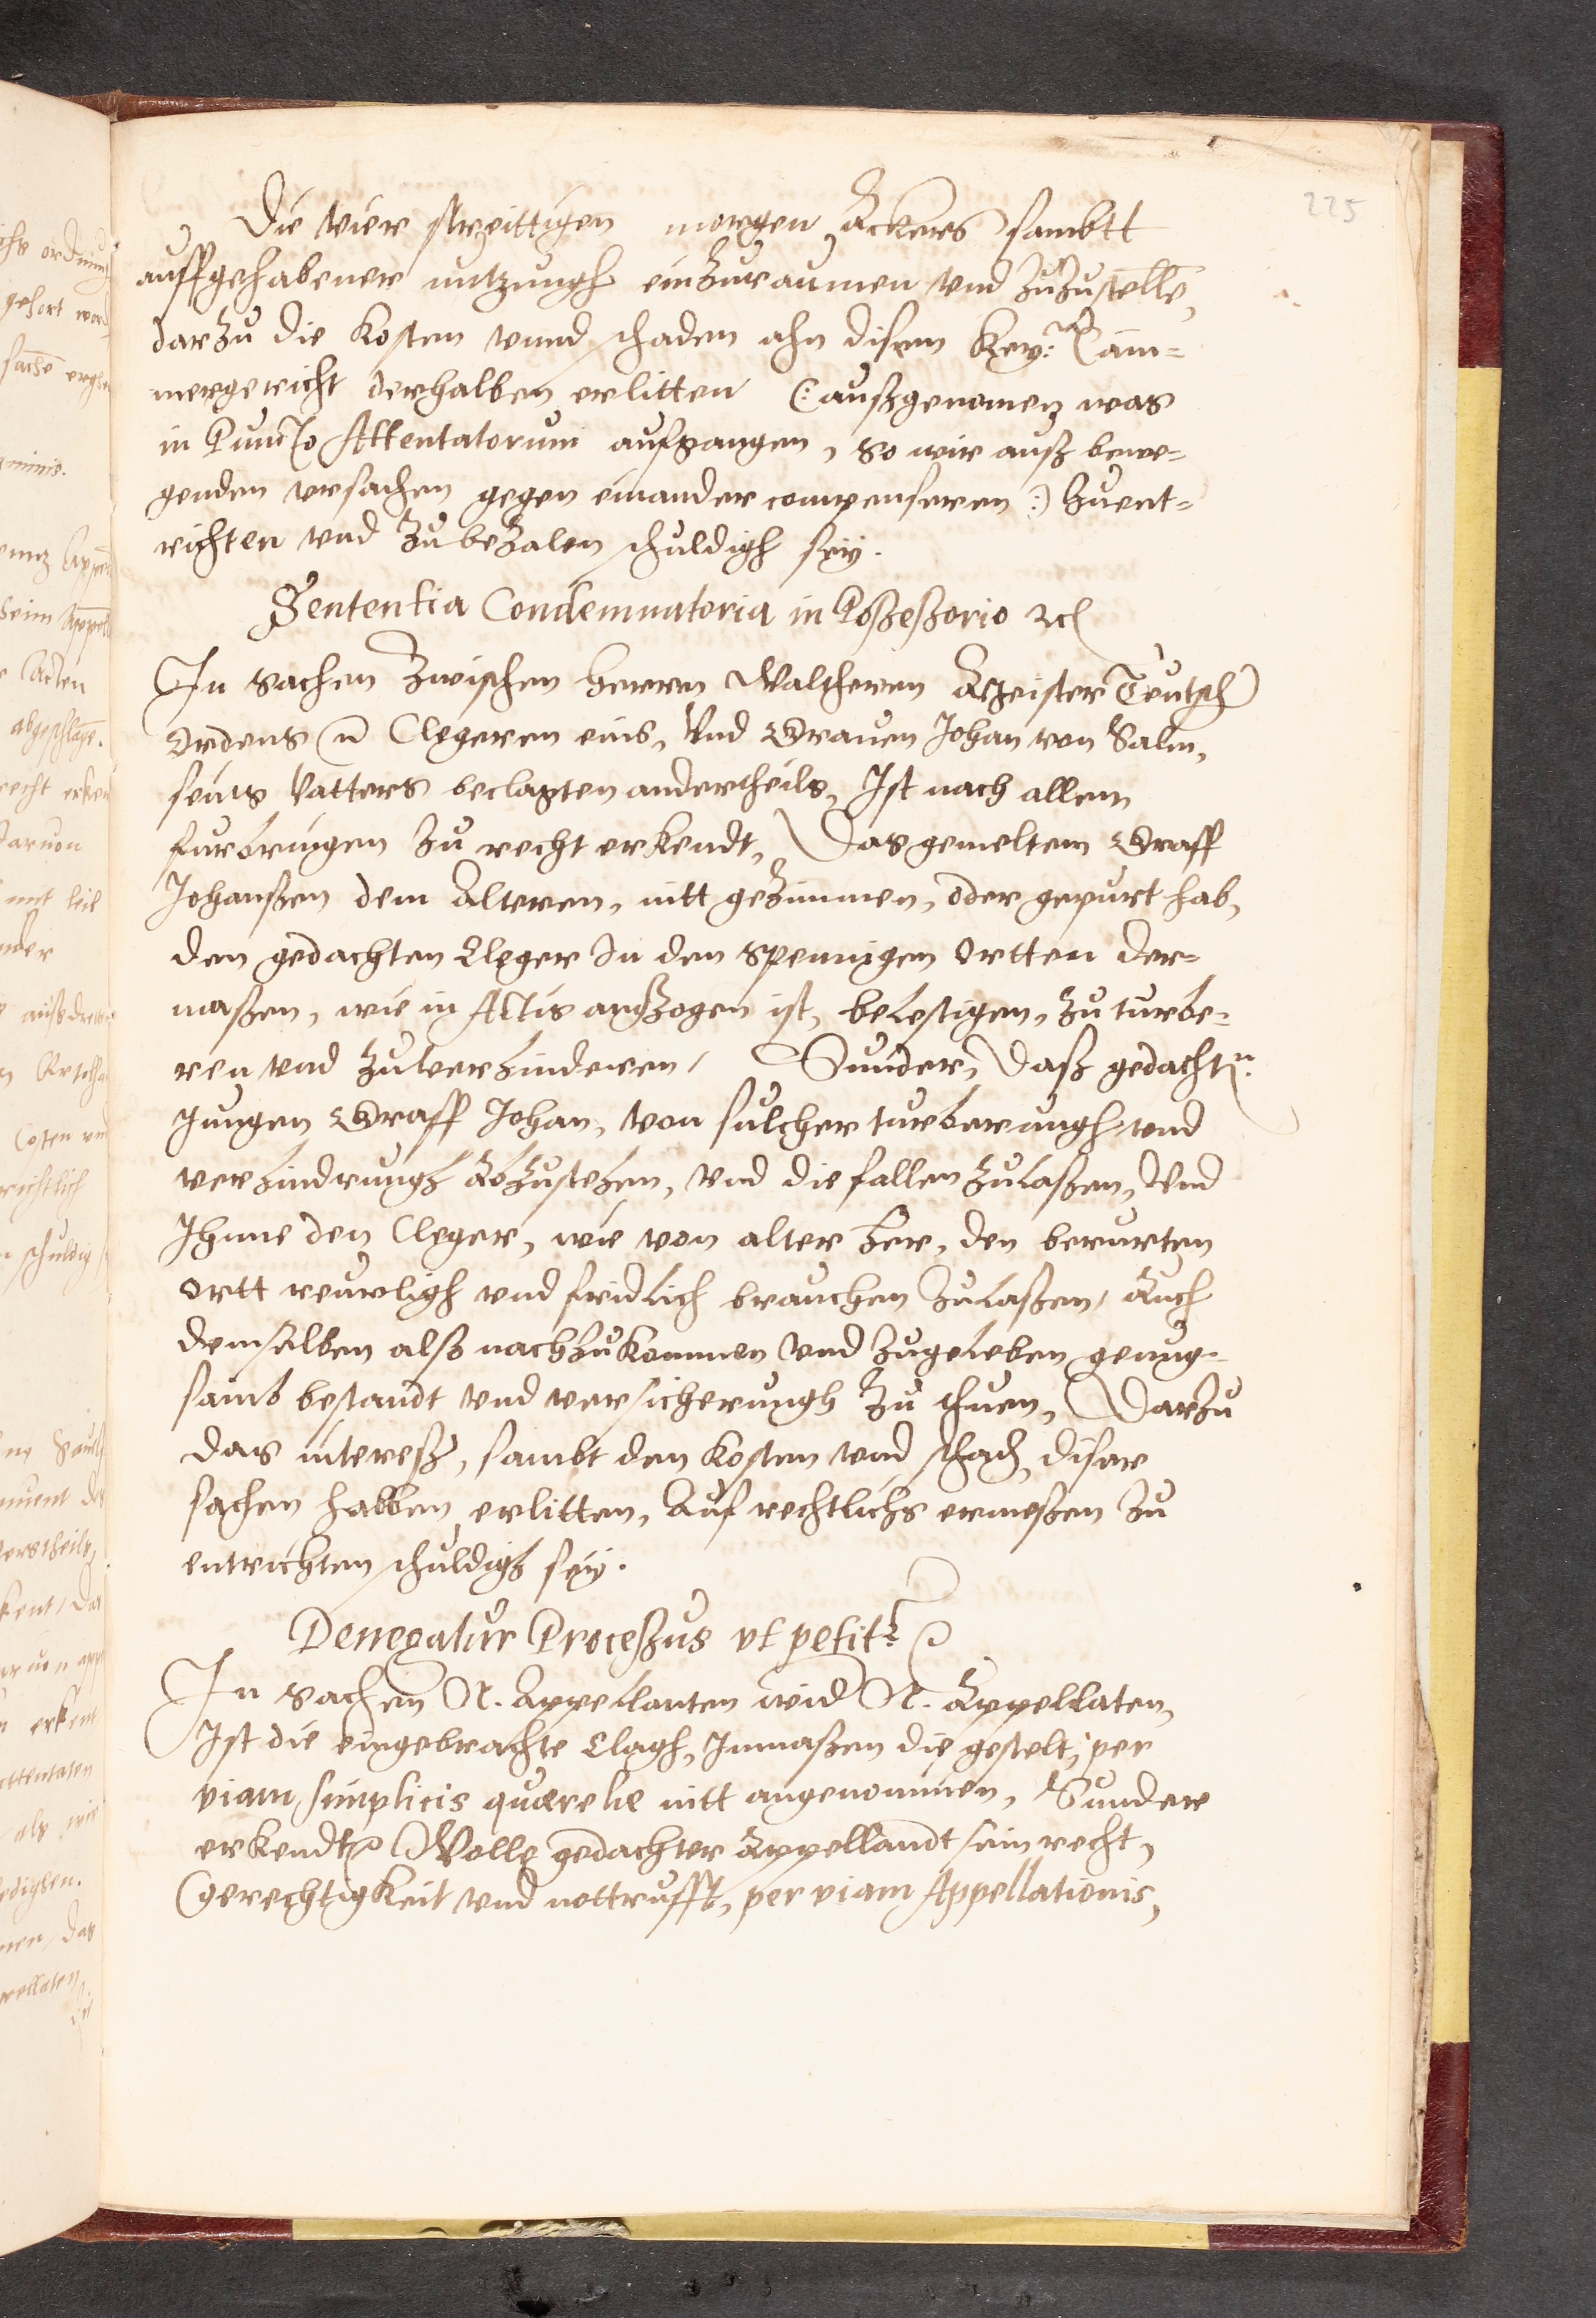 225
Die vier streittigen morgen Ackers sambtt
auffgehabener nutzungh einzuraumen vnd zuzustellē,
darzu die Kosten vnnd schaden ahn disem Key: Cam¬
mergericht derhalben erlitten (: außgenomen was
in Puncto Attentatorum aufgangen, so wir auß bewe¬
genden vrsachen gegen einander compenseren :) zuent¬
richten vnd zubezalen schuldigh sey.
Sententia Condemnatoria in Poßeßorio ꝛc
In sachen zwischen herren Waltheren Meister Teutsch
Ordens Clegeren eins, Vnd Grauen Johan von Salm,
seins Vatters beclagten andertheils, Ist nach allem
furbringen zu recht erkendt, Das gemeltem Graff
Johanßen dem Älteren, nitt gezimmen, oder gepurt hab,
den gedachten Cleger in den spennigen Ortten der¬
maßen, wie in Actis anßzogen ist, belestigen, zu turbe¬
ren vnd zuverhinderen, Sunder, Daß gedachtn
Jungen Graff Johan, von sulcher turberungh vnd
verhindrungh abzustehen, vnd die fallen zulaßen, Vnd
Ihnne den Cleger, wie von alter her, den berurten
Ortt reuwligh vnd fridlich brauchen zulaßen, Auch
demselben alß nachzukommen vnd zugeleben genug¬
samb bestandt vnd versicherungh zu thuen, Darzu
das intereß, sambt den Kosten vnd schad, diser
sachen halben erlitten, Auf rechtlichs ermeßen zu
entrichten schuldigh sey.
Denegatur Proceßus vt petitr
In sachen N. Appellanten wid N. Appellaten,
Ist die eingebrachte Clagh, Inmaßen die gestelt, per
viam simplicis quærelæ nitt angenommen, Sunder
erkendt, Wolle gedachter Appellandt sein recht,
Gerechtigkeit vnd nottrufft, per viam Appellationis,